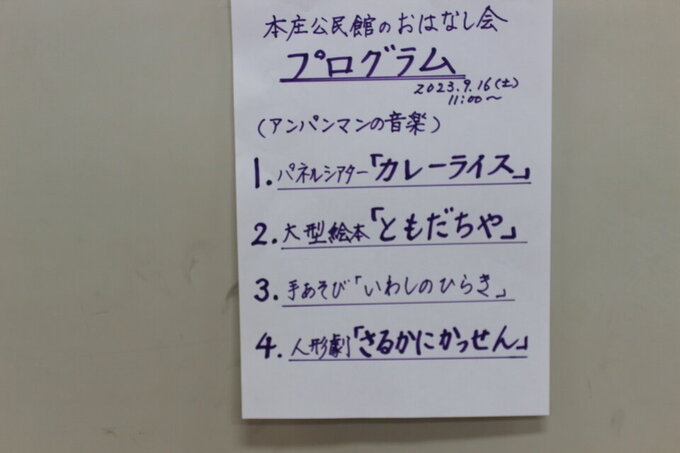 本庄公民館のおはなし会
プログラム
2023.9.16(土)
11:00～
(アンパンマンの音楽)
1.パネルシアター「カレーライス」
2.大型絵本「ともだちや」
3.手あそび「いわしのひらき」
4.人形劇「さるかにかっせん」